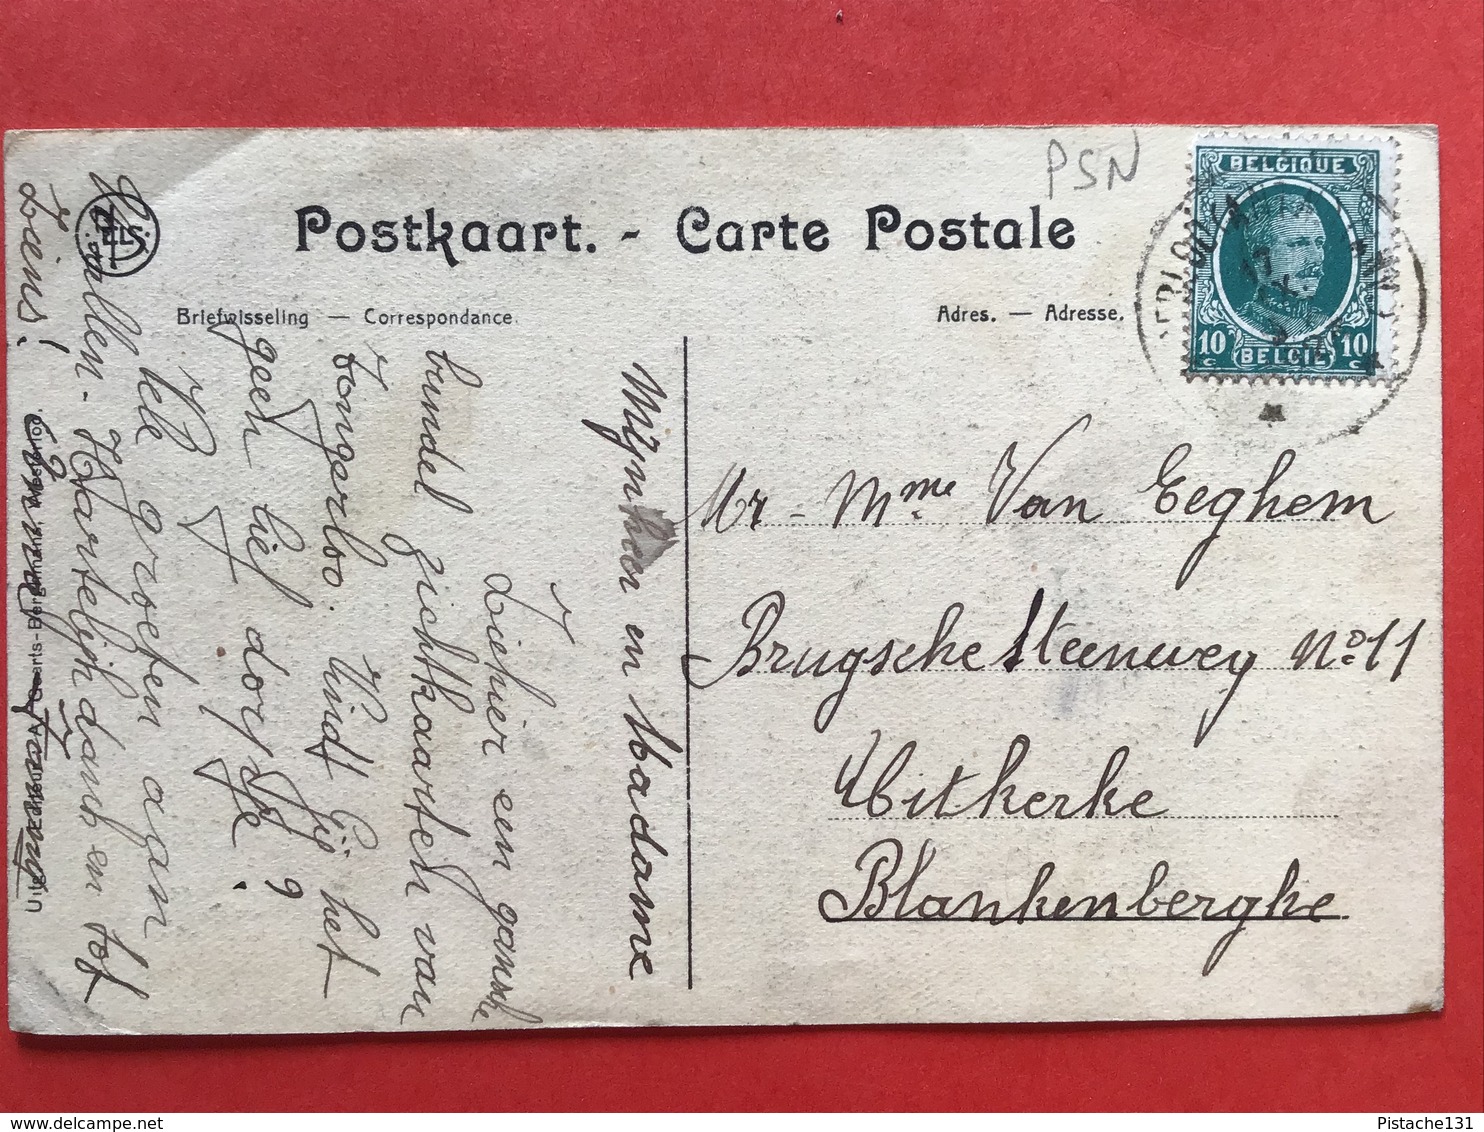 PSN
Postkaart. - Carte Postale
Briefwisseling — Correspondance.
Adres. — Adresse.
BELGIQUE
10 c BELGIË 10 c
NELS
Mynheer en Madame
Ziehier een gansche
bundel zichtkaarten van
Tongerloo. Vindt Gij het
geen lief dorpje?
Vele groeten agan
allen - Hartelijk dank en tot
Uitg. A. Geerts-Bergmans, Westerloo.
Mr - Mme Van Eeghem
Brugsche Steenweg No 11
Uitkerke
Blankenberghe
Pistache131